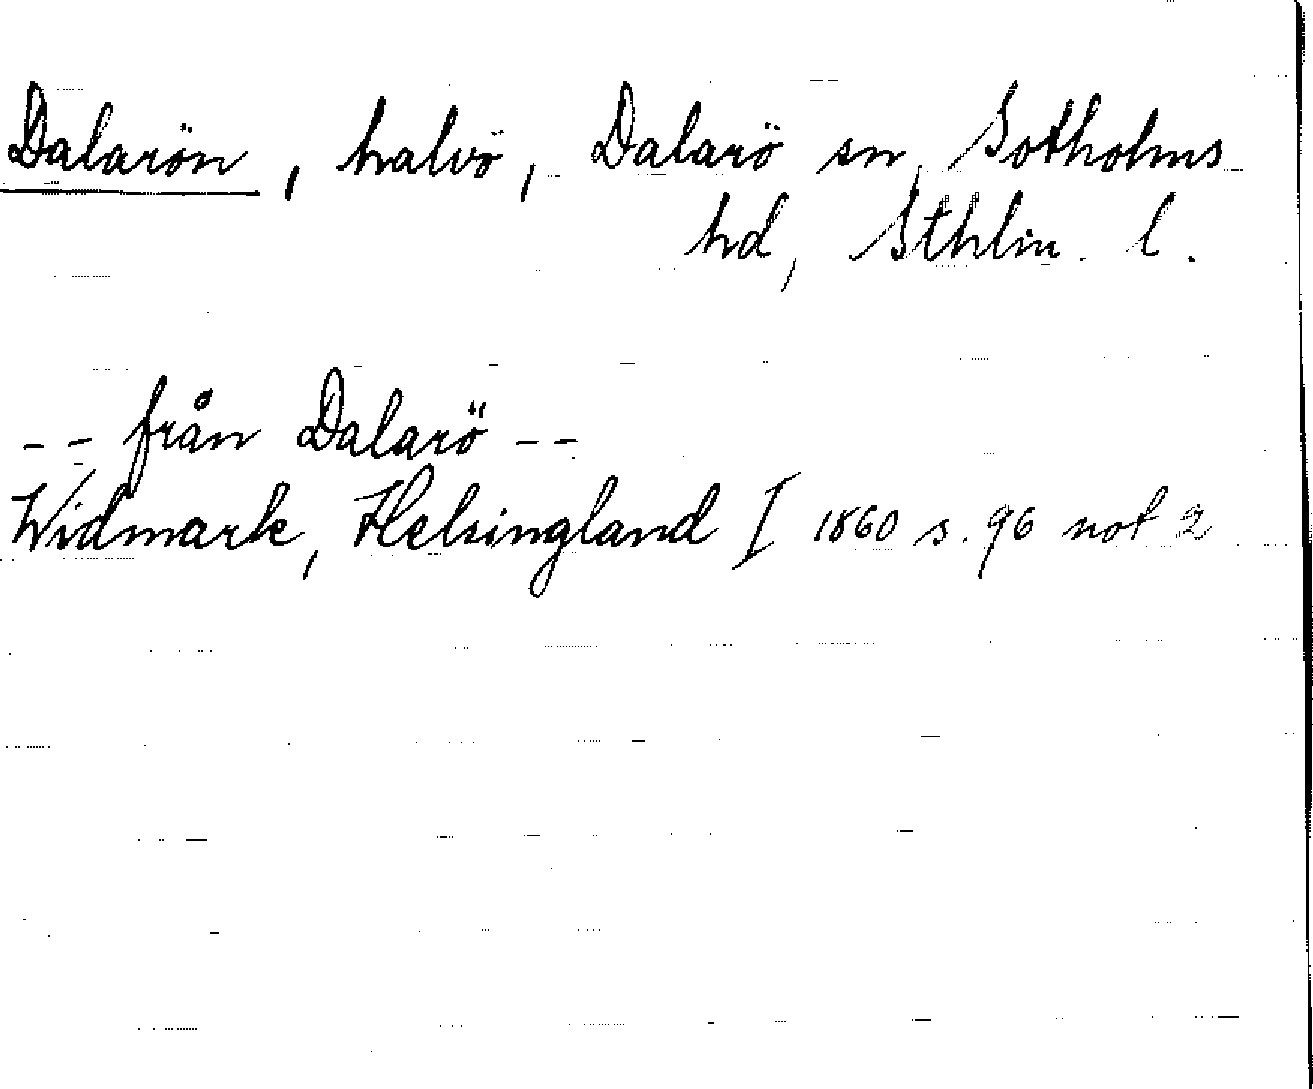 Dalarön, halvö, Dalarö sn, Sotholms
hd, Sthlm. l.
-- från Dalarö --
Widmark, Helsingland I 1860 s. 96 not 2